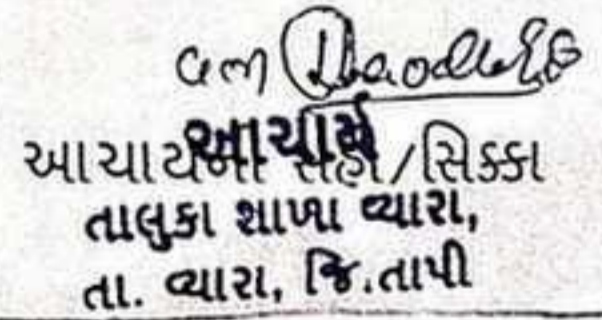 આચાર્ય
આચાર્યના સહી/સિક્કા
તાલુકા શાખા વ્યારા,
તા. વ્યારા, જિ.તાપી